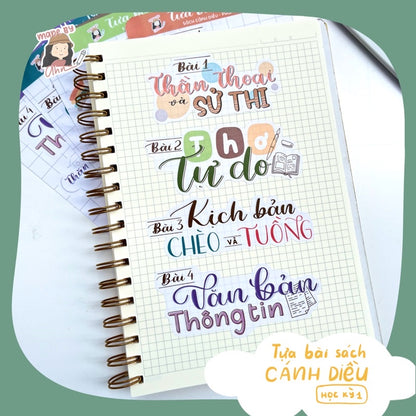 made by
Tựa
Bài 4
Bài 1
Thần thoại
và SỬ THI
Bài 2 Thơ
Tự do
Bài 3 Kịch bản
CHÈO VÀ TUỒNG
Bài 4
Văn bản
Thông tin
Tựa bài sách
CÁNH DIỀU
HỌC KỲ 1